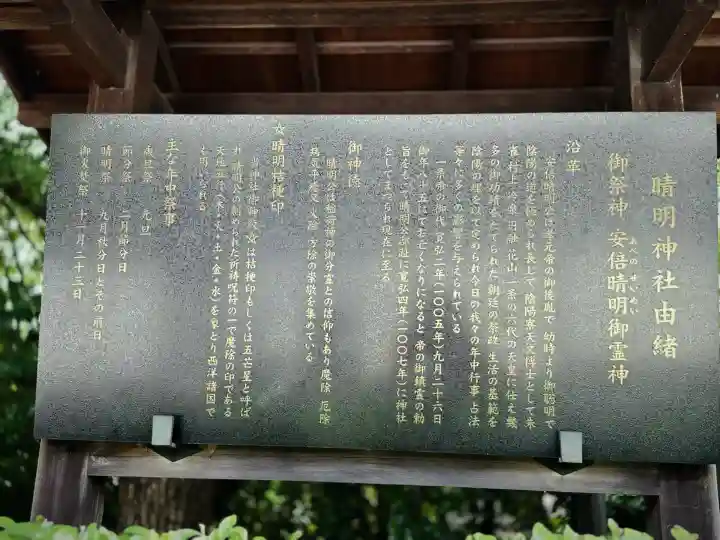 晴明神社由緒
御祭神 安倍晴明御霊神
あべの せいめい
沿革
安倍晴明公は孝元帝の御後胤で 幼時より御聡明で
陰陽の道を極められ長じて 陰陽寮天文博士として朱
雀 村上 冷泉 円融 花山 一条の六代の天皇に仕え幾
多の御功績をたてられた朝廷の祭政 生活の基範を
陰陽の理を以て定められ今日の我々の年中行事 占法
等々に多くの影響を与えられている
一条帝の御代 寛弘二年(一〇〇五年)九月二十六日
御年八十五にてお亡くなりになると 帝の御鎮霊の勅
旨をもって晴明公邸趾に寛弘四年(一〇〇七年)に神社
としてまつられ現在に至る
御神徳
晴明公は稲荷神の御分霊との信仰もあり魔除 厄除
病気平癒又 火除 方除の崇敬を集めている
☆晴明桔梗印
当神社御神紋 ☆は桔梗印もしくは五芒星と呼ば
れ 晴明公の創められた祈祷呪符の一で魔除の印である
天地五行(木・火・土・金・水)を象どり西洋諸国で
も用いられる
主な年中祭事
歳旦祭 元旦
節分祭 二月節分日
晴明祭 九月秋分日とその前日
御火焚祭 十一月二十三日